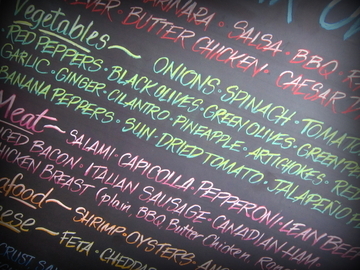 MARINARA · SALSA · BBQ · RE
BUTTER CHICKEN · CAESAR
Vegetables~ ONIONS · SPINACH · TOMATO
RED PEPPERS · BLACK OLIVES · GREEN OLIVES · GREEN PEP
GARLIC · GINGER · CILANTRO · PINEAPPLE · ARTICHOKES · RE
BANANA PEPPERS · SUN DRIED TOMATO · JALAPENO
Meat~ SALAMI · CAPICOLLA · PEPPERONI · LEAN BEE
ICED BACON · ITALIAN SAUSAGE · CANADIAN HAM
CHICKEN BREAST (plain, BBQ, Butter Chicken,
afood~ SHRIMP · OYSTERS
eese~ FETA · CHEDDA
CRUST